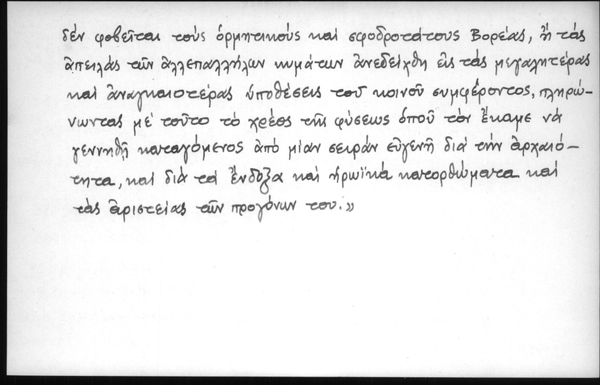 δέν φοβεῖται τούς ὁρμητικούς καί σφοδροτάτους Βορέας, ἤ τάς
ἀπειλάς τῶν ἀλλεπαλλήλων κυμάτων ἀνεδείχθη εἰς τάς μεγαλητέρας
καί ἀναγκαιοτέρας ὑποθέσεις τοῦ κοινοῦ συμφέροντος, πληρώ-
νωντας μέ τοῦτο τό χρέος τῆς φύσεως ὁποῦ τόν ἔκαμε νά
γεννηθῇ καταγόμενος ἀπό μίαν σειράν εὐγενῆ διά τήν ἀρχαιό-
τητα, καί διά τά ἔνδοξα καί ἡρωϊκά κατορθώματα καί
τάς ἀριστείας τῶν προγόνων του.»